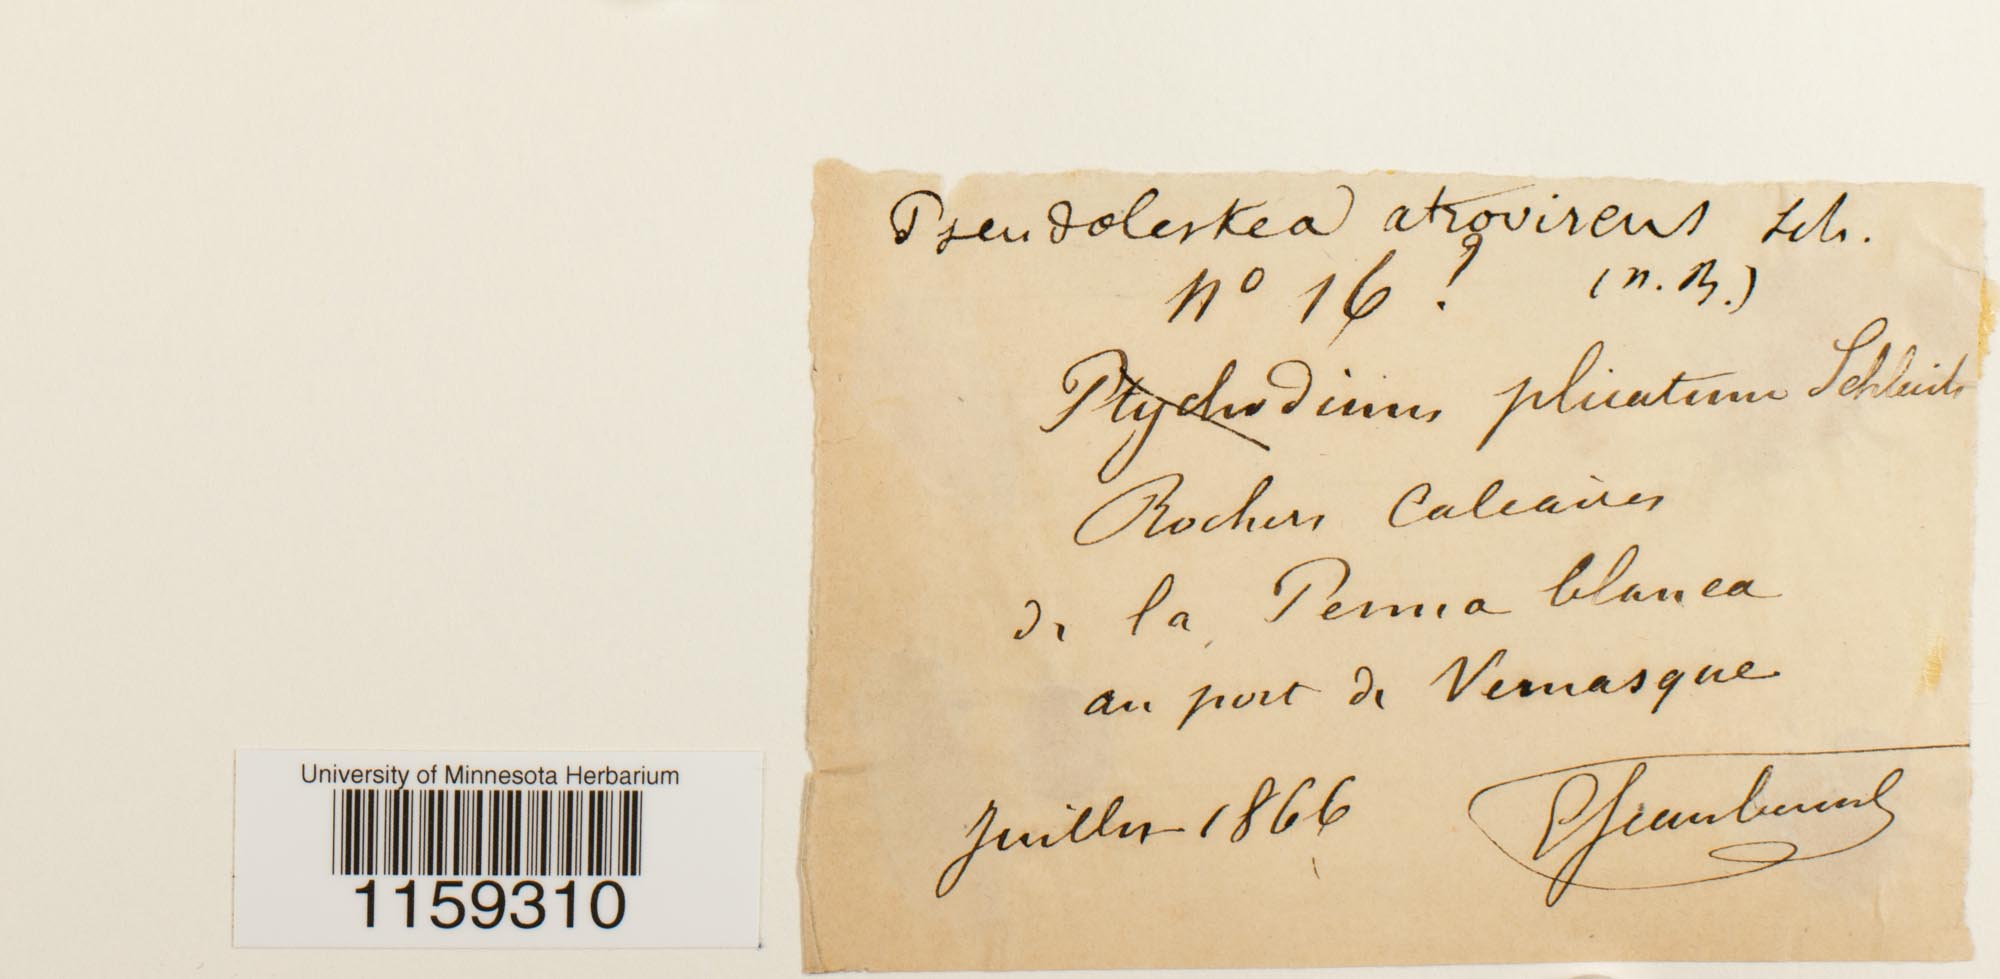 Pseudoleskea atrovirens Sch.
nº 16 ? (n. B.)
Ptychodium plicatum Schleich
Rochers Calcaires
de la Penna blanca
au port de Venasque
Juillet 1866 PJeanbernat
University of Minnesota Herbarium
1159310